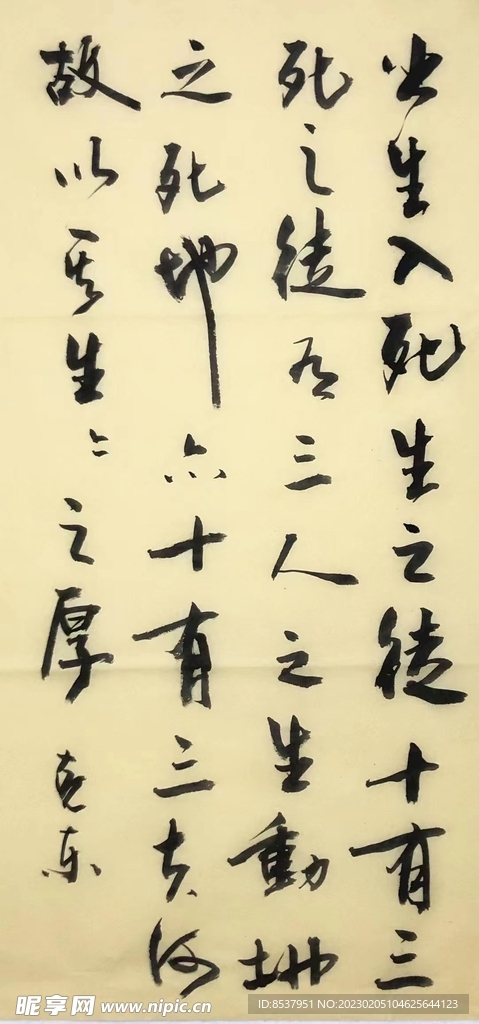 出生入死生之徒十有三
死之徒有三人之生動地
之死地亦十有三夫何
故以其生〻之厚 克东
昵享网 www.nipic.cn
ID:8537951 NO:20230205104625644123